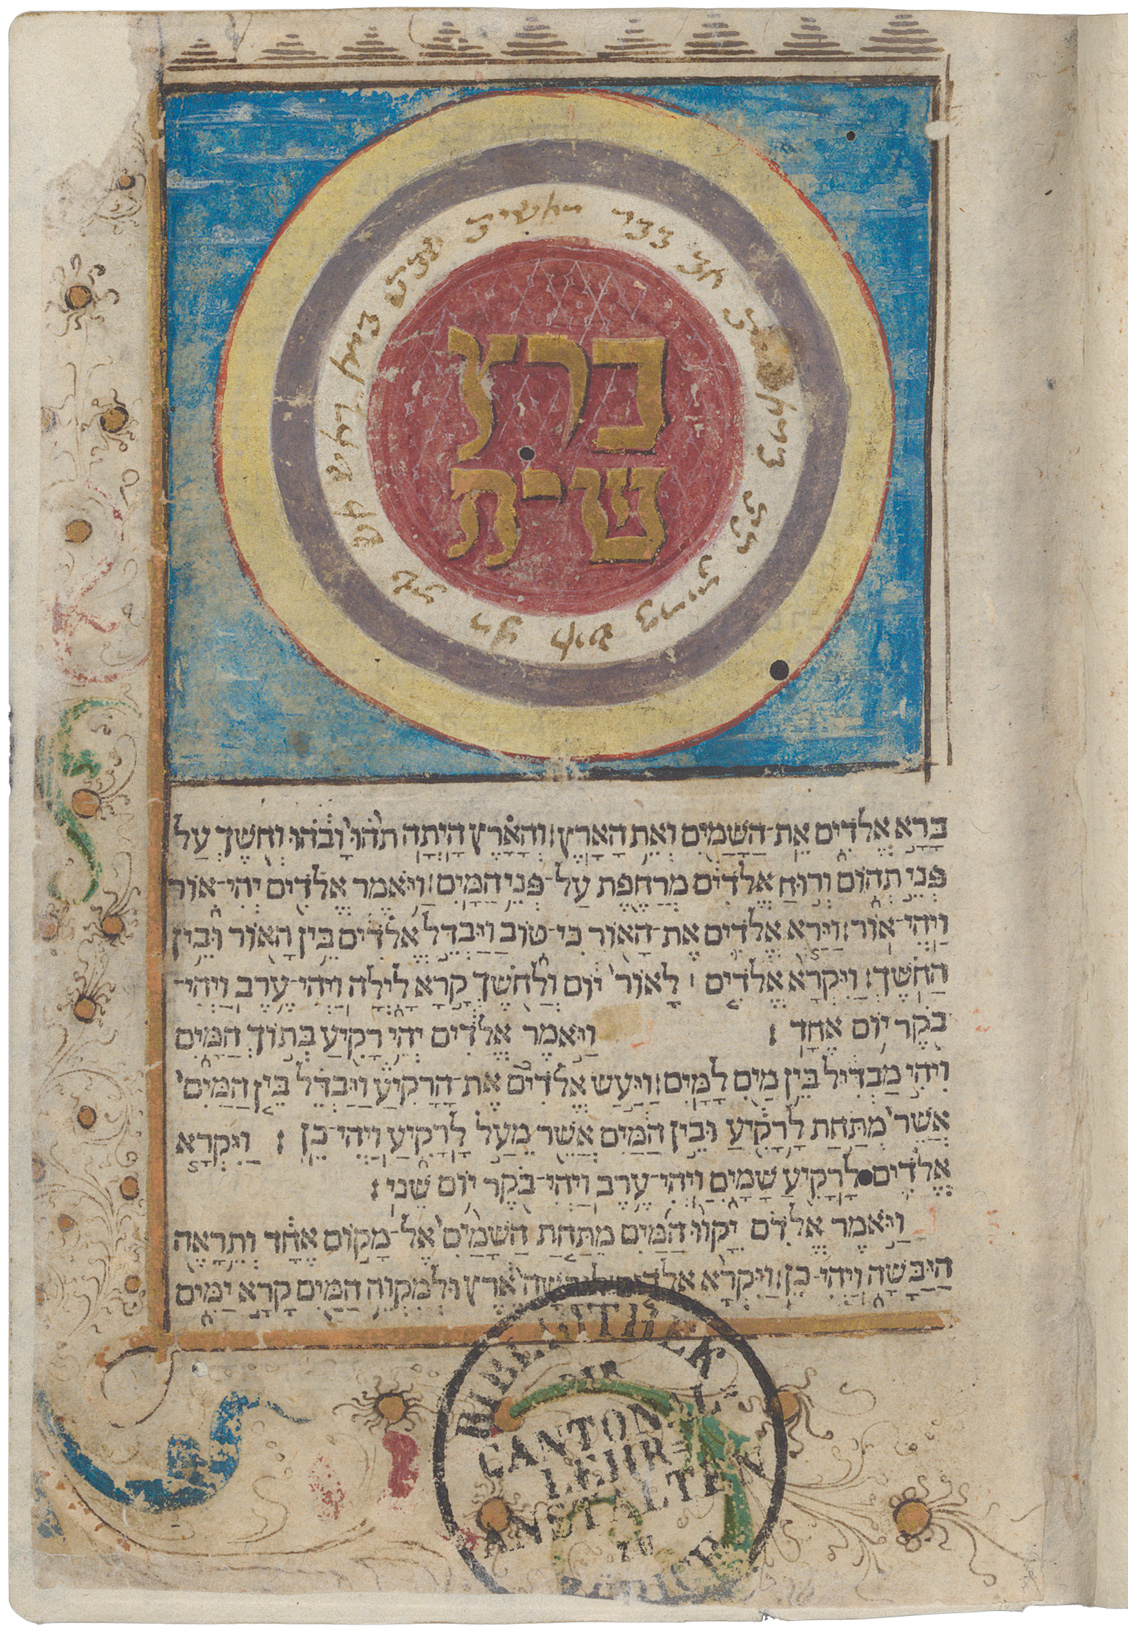 ברא
שית
ברא אלדים את־השמים ואת הארץ׃ והארץ היתה תהו ובהו וחשך על
פני תהום ורוח אלדים מרחפת על־פני המים׃ ויאמר אלדים יהי־אור
ויהי־אור׃ וירא אלדים את־האור כי־טוב ויבדל אלדים בין האור ובין
החשך׃ ויקרא אלדים ׀ לאור יום ולחשך קרא לילה ויהי־ערב ויהי־
בקר יום אחד ׃ ויאמר אלדים יהי רקיע בתוך המים
ויהי מבדיל בין מים למים׃ ויעש אלדים את־הרקיע ויבדל בין המים
אשר מתחת לרקיע ובין המים אשר מעל לרקיע ויהי־כן ׃ ויקרא
אלדים לרקיע שמים ויהי־ערב ויהי־בקר יום שני ׃
ויאמר אלדים יקוו המים מתחת השמים אל־מקום אחד ותראה
היבשה ויהי־כן׃ ויקרא אלדים ליבשה ארץ ולמקוה המים קרא ימים
BIBLIOTHEK
DER
CANTONAL-
LEHR=
ANSTALTEN
IN
ZÜRICH